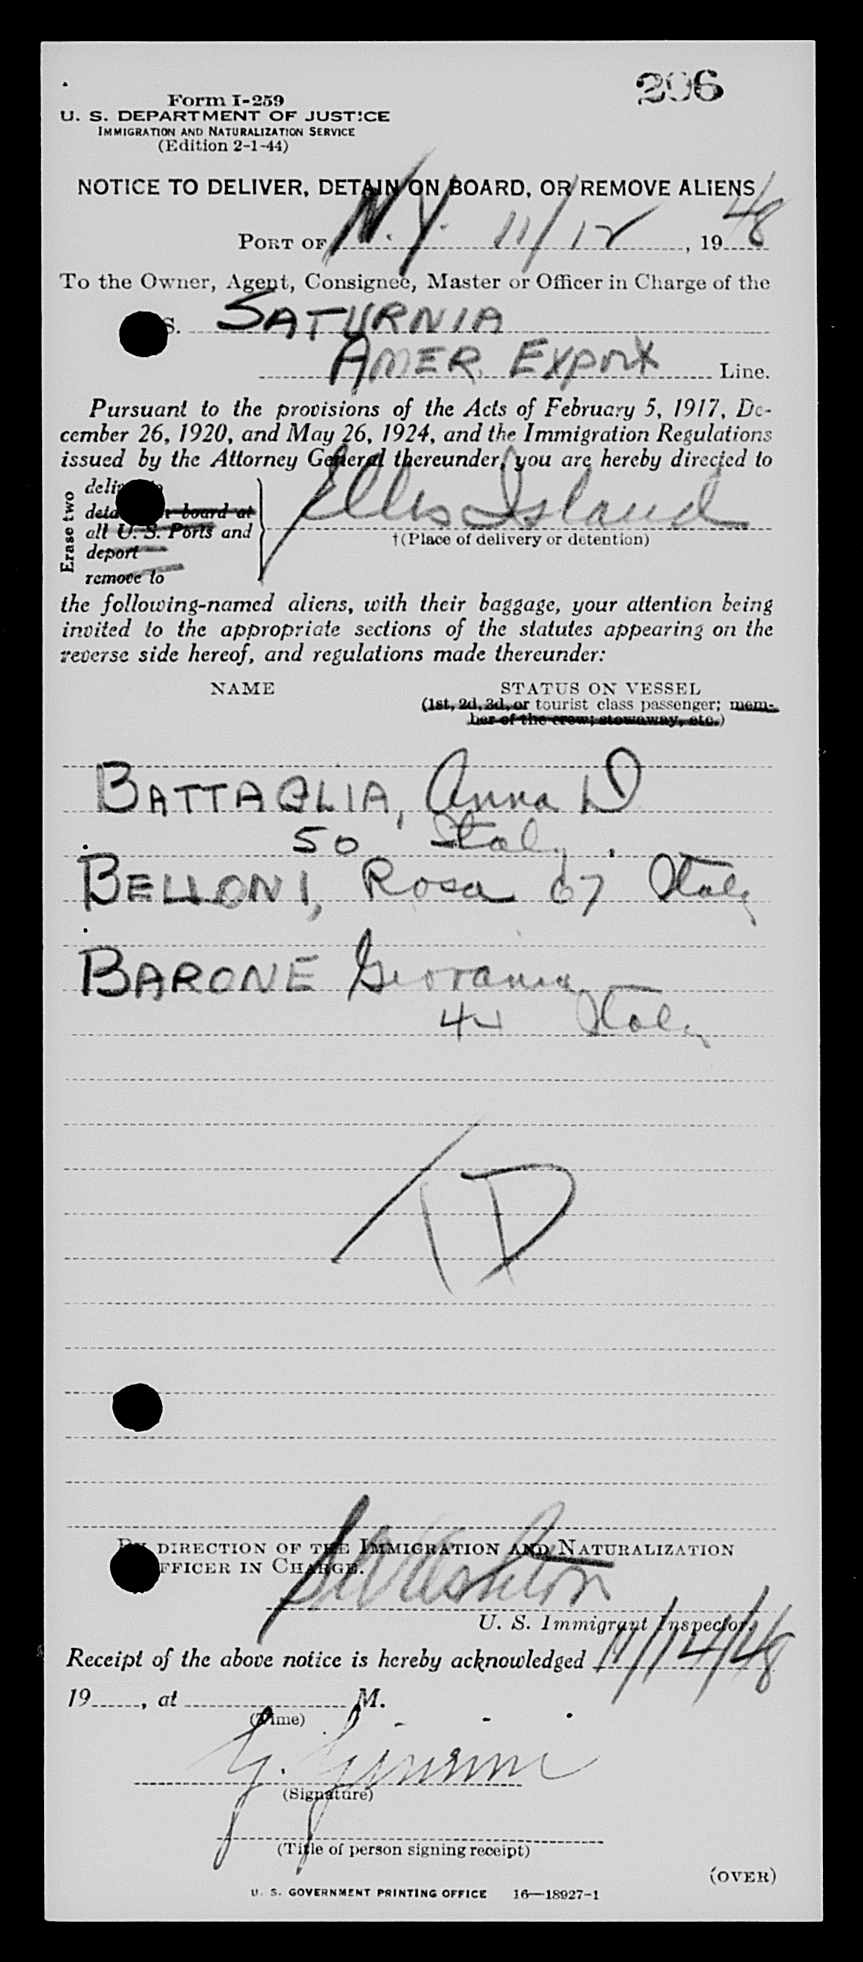 206
Form I-259
U. S. DEPARTMENT OF JUSTICE
IMMIGRATION AND NATURALIZATION SERVICE
(Edition 2-1-44)
NOTICE TO DELIVER, DETAIN ON BOARD, OR REMOVE ALIENS
PORT OF N.Y. 11/12, 1948
To the Owner, Agent, Consignee, Master or Officer in Charge of the
S. SATURNIA
AMER. Export Line.
Pursuant to the provisions of the Acts of February 5, 1917, De-
cember 26, 1920, and May 26, 1924, and the Immigration Regulations
issued by the Attorney General thereunder, you are hereby directed to
Erase two
deliver to
detain on board at
all U. S. Ports and
deport
remove to
Ellis Island
†(Place of delivery or detention)
the following-named aliens, with their baggage, your attention being
invited to the appropriate sections of the statutes appearing on the
reverse side hereof, and regulations made thereunder:
NAME STATUS ON VESSEL
(1st, 2d, 3d, or tourist class passenger; mem-
ber of the crew; stowaway, etc.)
BATTAGLIA, Anna D
50 Italy
BELLONI, Rosa 67 Italy
BARONE Giovanna
42 Italy
TD
BY DIRECTION OF THE IMMIGRATION AND NATURALIZATION
OFFICER IN CHARGE.
U. S. Immigrant Inspector.
Receipt of the above notice is hereby acknowledged 11/14/48
19, at M.
(Time)
(Signature)
(Title of person signing receipt)
(OVER)
U. S. GOVERNMENT PRINTING OFFICE 16—18927-1